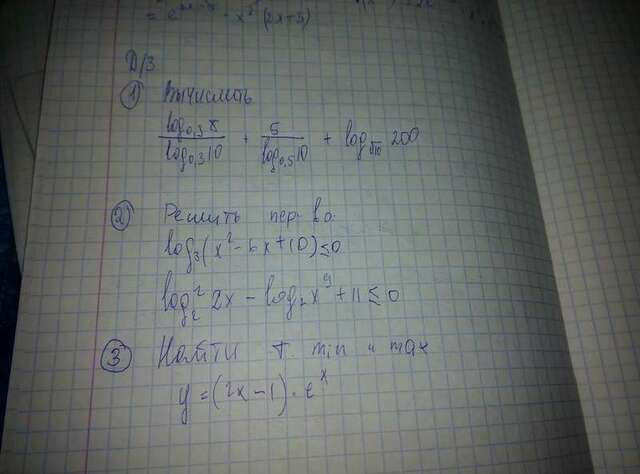 = e
x² (2x+5)
Д/З
① Вычислить
log₀,₃ 8 / log₀,₃ 10 + 5 / log₀,₅ 10 + log_√10 200
② Решить нер-во
log₃(x² - 6x + 10) ≤ 0
log₂² 2x - log₂ x⁹ + 11 ≤ 0
③ Найти т. min и max
y = (2x - 1) · eˣ